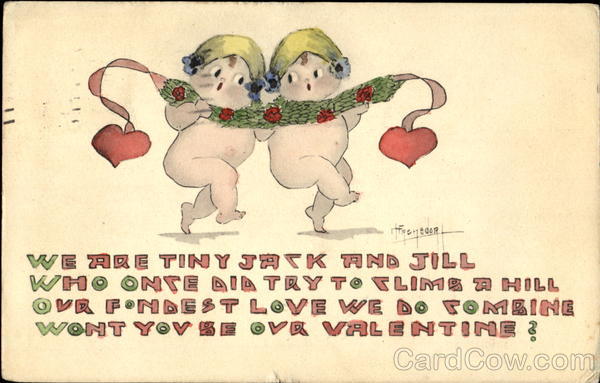 WE ARE TINY JACK AND JILL
WHO ONCE DID TRY TO CLIMB A HILL
OUR FONDEST LOVE WE DO COMBINE
WONT YOU BE OUR VALENTINE?
CardCow.com